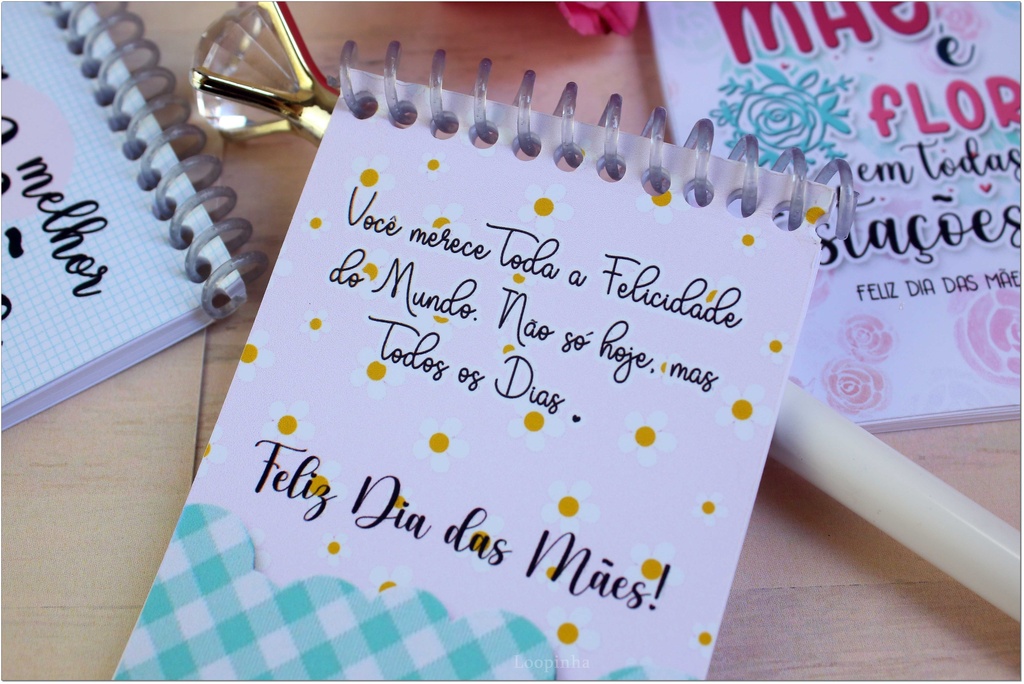 Você merece Toda a Felicidade
do Mundo. Não só hoje, mas
Todos os Dias.
Feliz Dia das Mães!
melhor
MÃE
é
FLOR
em todas
estações
FELIZ DIA DAS MÃE
Loopinha